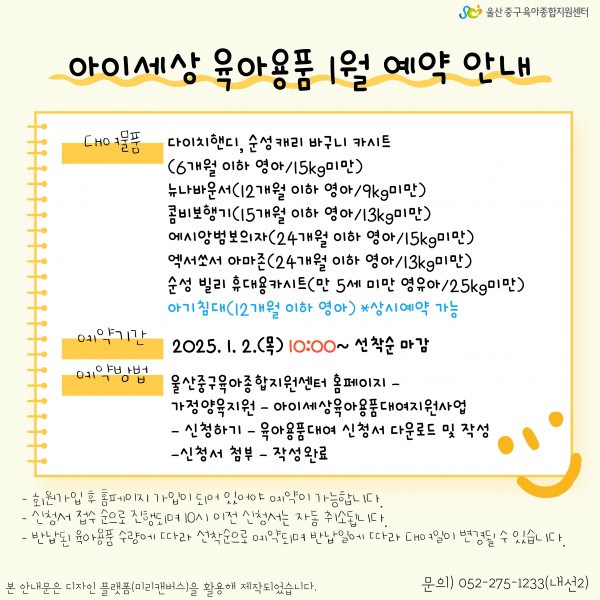 울산 중구 육아종합지원센터
아이세상 육아용품 1월 예약 안내
대여물품
다이치핸디, 순성캐리 바구니 카시트
(6개월 이하 영아/15kg미만)
뉴나바운서(12개월 이하 영아/9kg미만)
콤비보행기(15개월 이하 영아/13kg미만)
에시앙범보의자(24개월 이하 영아/15kg미만)
엑서쏘서 아마존(24개월 이하 영아/13kg미만)
순성 빌리 휴대용카시트(만 5세 미만 영유아/25kg미만)
아기침대(12개월 이하 영아) *상시예약 가능
예약기간
2025. 1. 2.(목) 10:00~ 선착순 마감
예약방법
울산중구육아종합지원센터 홈페이지 -
가정양육지원 - 아이세상육아용품대여지원사업
- 신청하기 - 육아용품대여 신청서 다운로드 및 작성
-신청서 첨부 - 작성완료
- 회원가입 후 홈페이지 가입이 되어 있어야 예약이 가능합니다.
- 신청서 접수 순으로 진행되며 10시 이전 신청서는 자동 취소됩니다.
- 반납된 육아용품 수량에 따라 선착순으로 예약되며 반납일에 따라 대여일이 변경될 수 있습니다.
본 안내문은 디자인 플랫폼(미리캔버스)을 활용해 제작되었습니다.
문의) 052-275-1233(내선2)